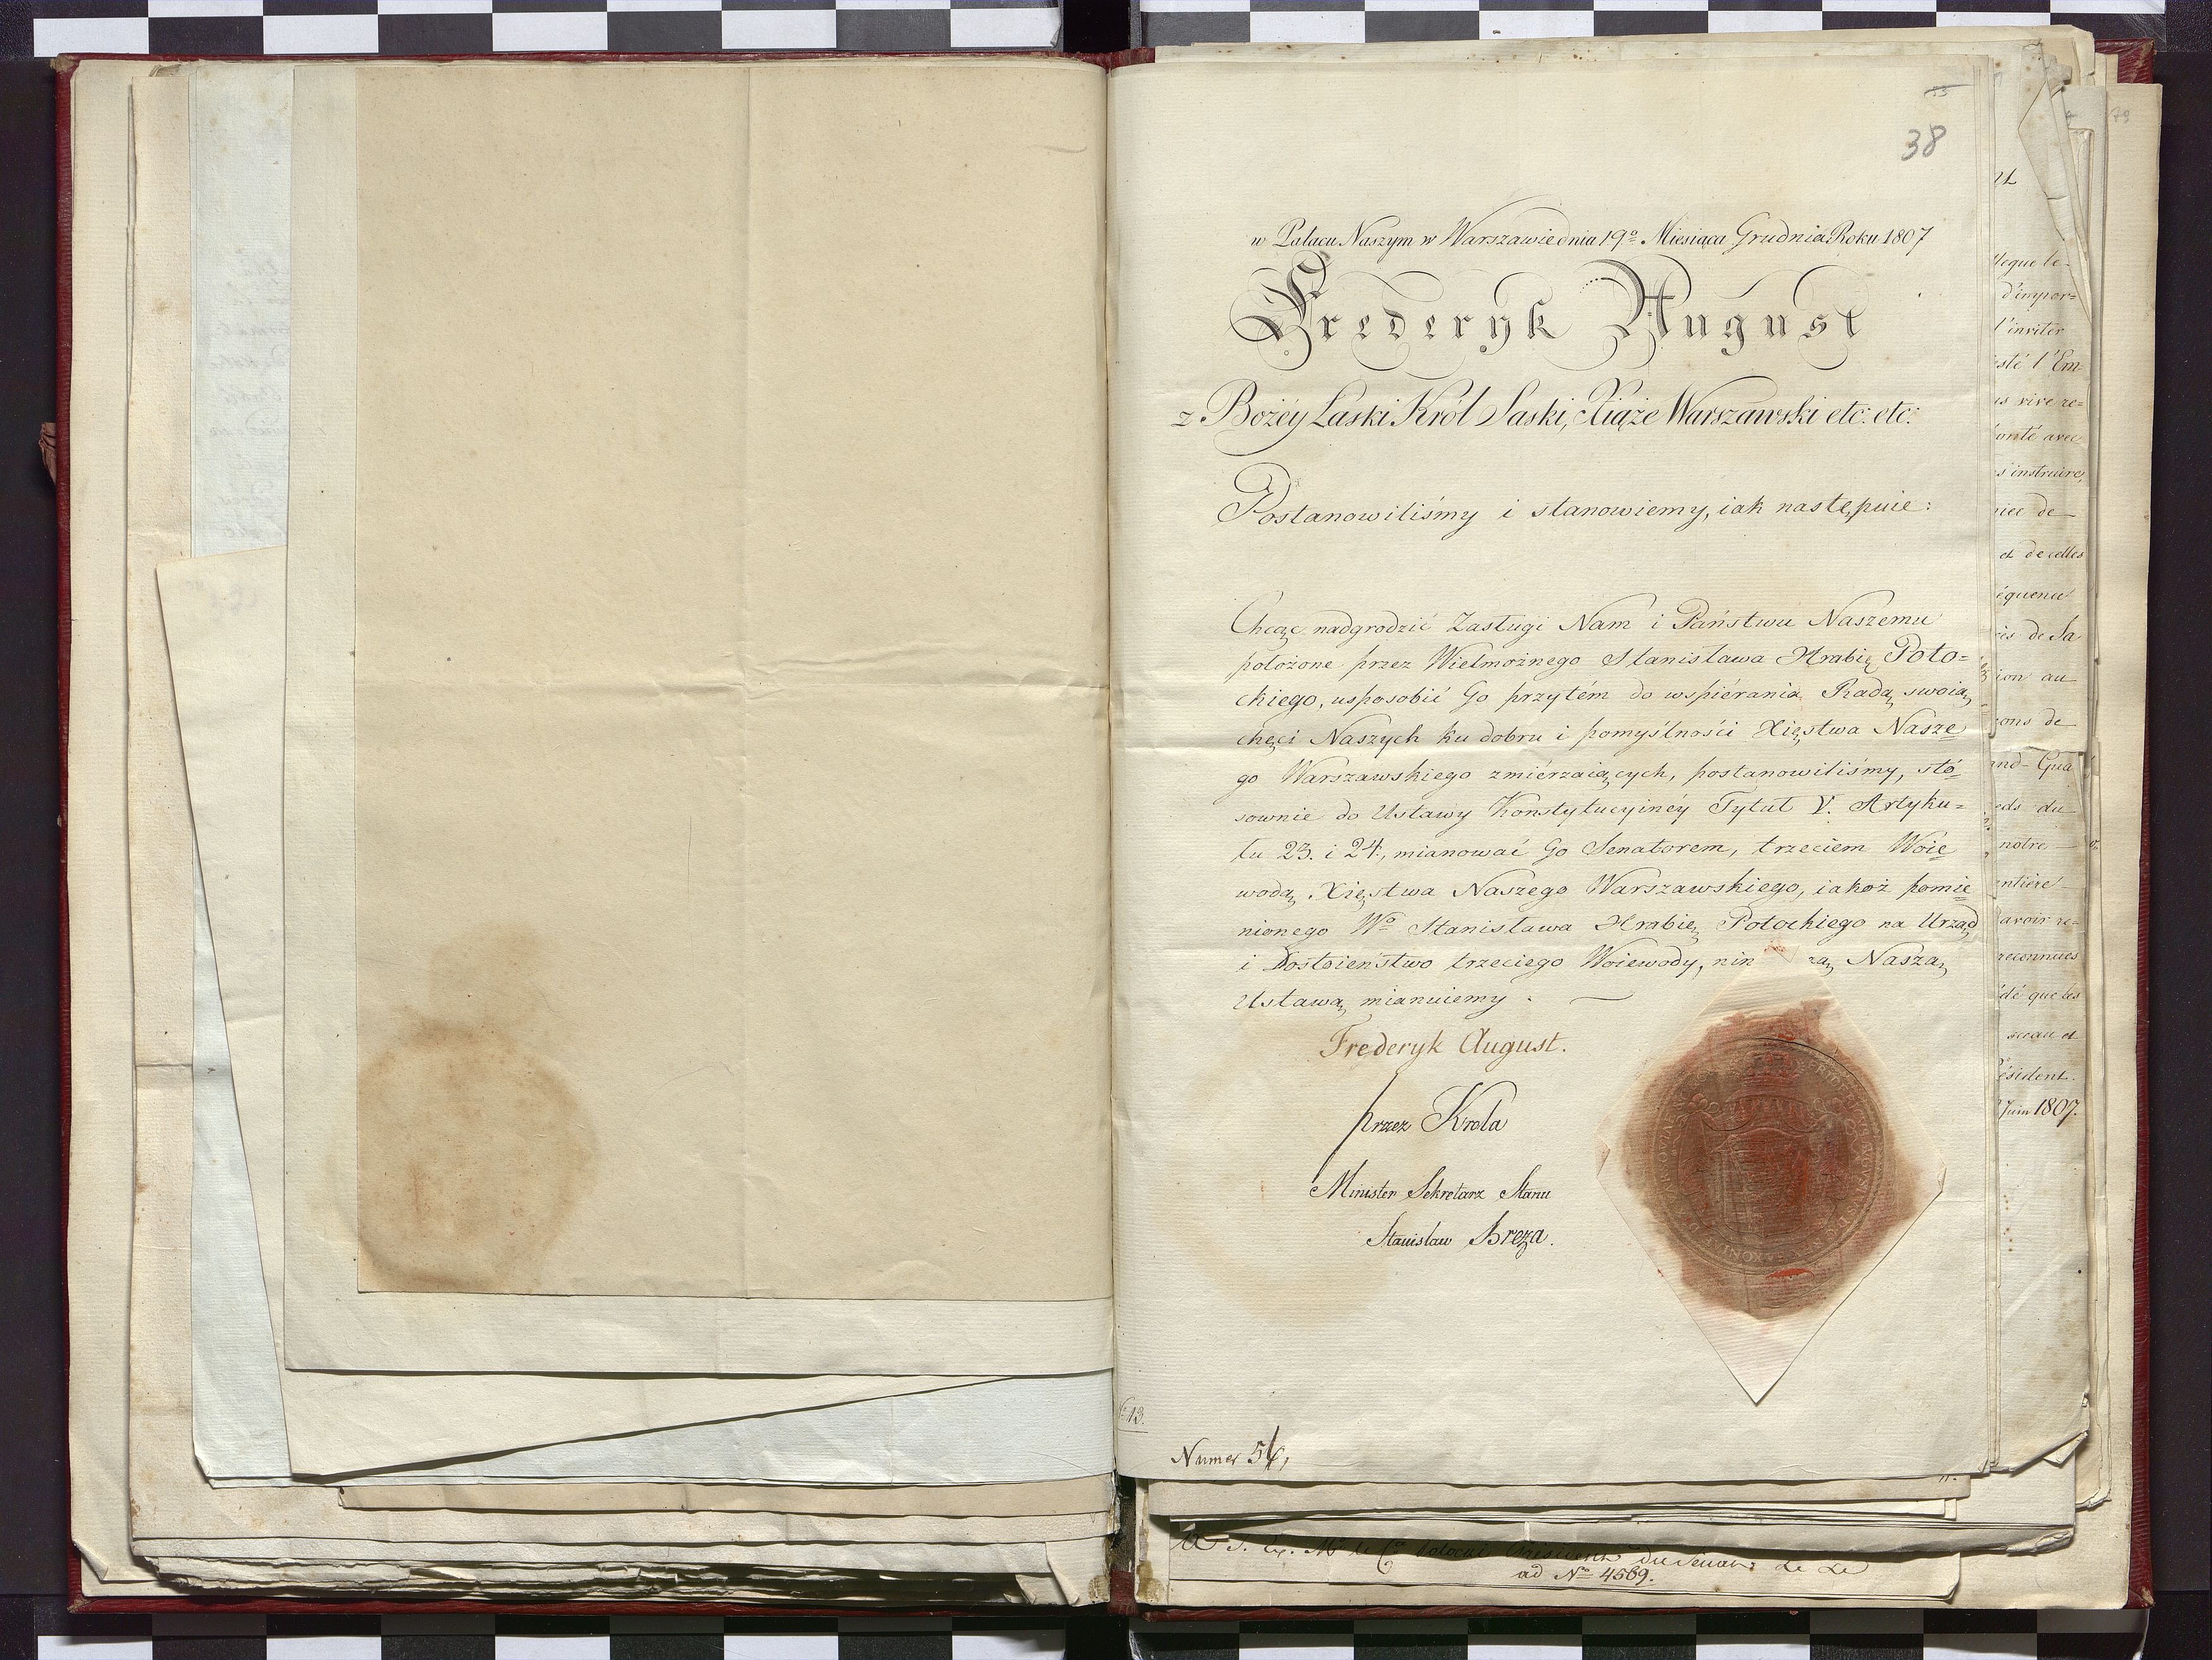 38
w Pałacu Naszym w Warszawie dnia 19º Miesiąca Grudnia Roku 1807
Frederyk August
z Bożéy Łaski Król Saski, Xiąże Warszawski etc: etc:
Postanowiliśmy i stanowiemy, iak następuie:
Chcąc nadgrodzić Zasługi Nam i Państwu Naszemu
położone przez Wielmożnego Stanisława Hrabię Poto=
ckiego, usposobić Go przytém do wspiérania Radą swoią
chęci Naszych ku dobru i pomyślności Xięstwa Nasze
go Warszawskiego zmiérzaiących, postanowiliśmy, stó
sownie do Ustawy Konstytucyinéy Tytuł V. Artyku=
łu 23. i 24., mianować Go Senatorem, trzeciem Woie
wodą Xięstwa Naszego Warszawskiego, iakoż pomie
nionego Wº Stanisława Hrabię Potockiego na Urząd
i Dostoieństwo trzeciego Woiewody, nin zą Naszą
Ustawą mianuiemy.
Frederyk August.
przez Krola
Minister Sekretarz Stanu
Stanisław Breza.
13.
Numer 54,
ad Nº 4569.
79
legue le-
d'impor=
l'inviter
sté l'Em
vive re=
onté avec
s instruire,
de
et de celles
équence
de Sa
ion au
ons de
and-Gua
eds du
notre
entière
avoir re=
reconnues
dé que les
sceau et
ésident.
Juin 1807.